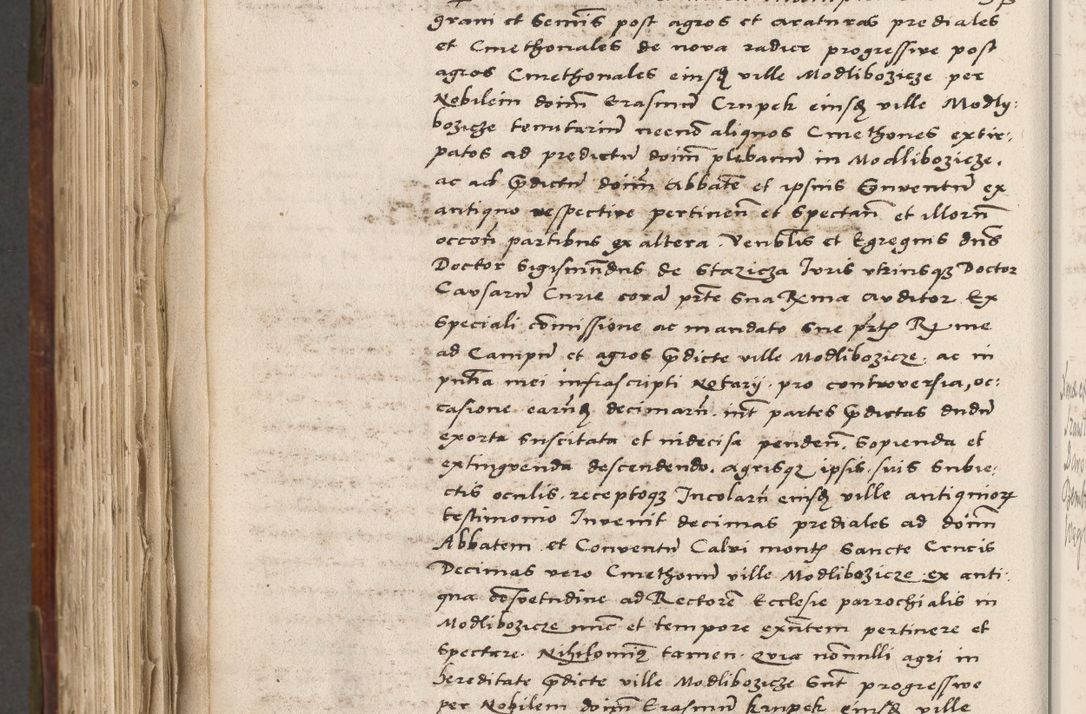 grani et Semīs post agros et araturas prediales
et Cmethonales de nova radice progressive post
agros Cmethonales eiusd ville Modlibozicze per
Nobilem doim Erasmū Crupek eiusd ville Modly:
bozicze tenutariū necnō aliquos Cmethones extir:
patos ad predictū doim plebanū in Modlibozicze.
ac ad pdictū doim Abbatē et ipsius Conventū ex
antiquo respective pertinen et Spectan et illorū
occon partibus ex altera. Venblis et Egregius dns
Doctor Sigismūdus de Stazicza Juris utriusqz Doctor
Causarū Curie corā prte Sua Rxma Auditor Ex
Speciali comissione ac mandato Sue prtis Rxme
ad Campū et agros pdicte ville Modlibozicze, ac in
pntia mei infrascripti Notarij. pro controversia, oc:
casione earund decimarū. int partes pdictas dudū
exorta Suscitata et indecisa penden. Sopienda et
extinguenda descendendo. agrisqz ipsis. suis Subie:
ctis oculis. receptoqz Incolarū eiusd ville antiquiorz
testimonio Invenit decimas prediales ad doim
Abbatem et Conventū Calvi montis Sancte Crucis
Decimas vero Cmethonū ville Modlibozicze ex anti:
qua consvetudine ad Rectorē Ecclesie parrochialis in
Modlibozicze nunc et tempore exntem pertinere et
Spectare. Nihilominqz tamen. Quia nonnulli agri in
hereditate pdicte ville Modlibozicze Sunt progressive
per Nobilem doim Erasmū Krupek eiusd ville